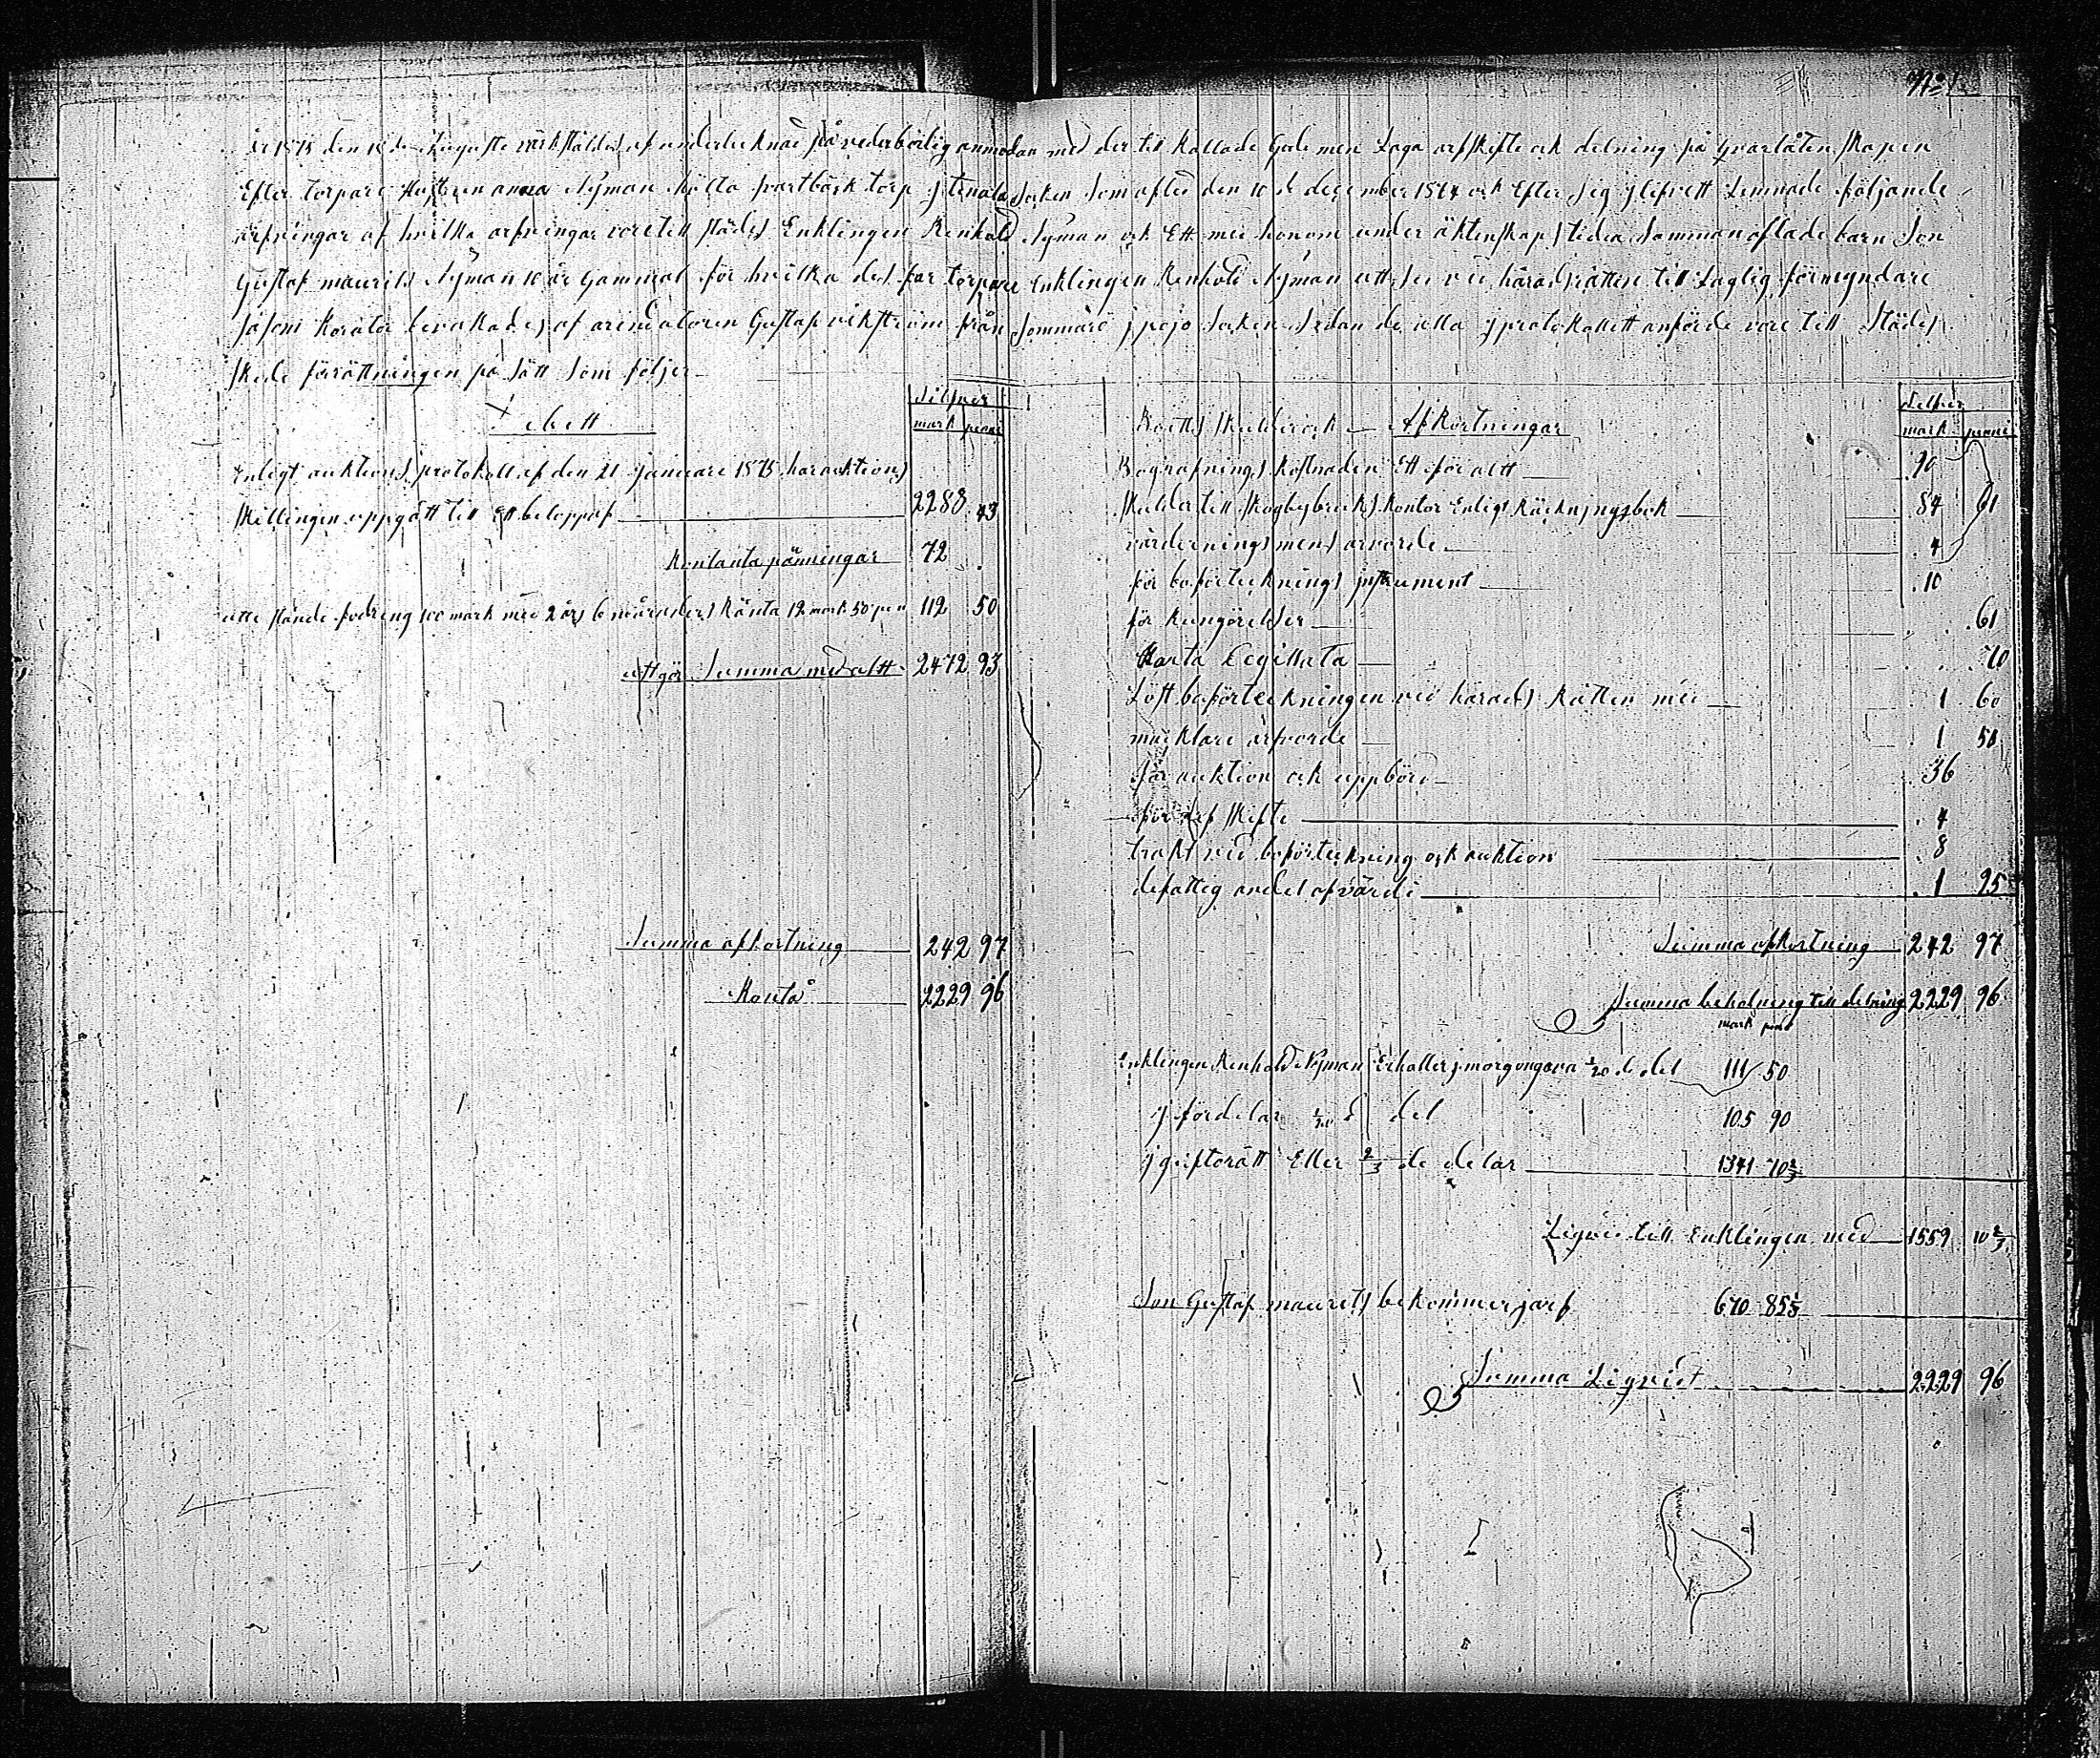 No 1
År 1875 den 18 de Auguste värkstäldes af undertecknad på vederbörlig anmodan med der till kallade Gode men Laga arfskifte ock delning på qvarlåtenskapen
Efter torpare Hustrun anna Nyman Mölla svartbäck torp j tenala Socken Som afled den 10 de december 1874 ock Efter Sig j lifvett Lemnade följande
arfvingar af hvilka arfvingar vore till städes Enklingen Renhold Nyman ock Ett med honom under äktenskaps tiden Sammanaflade barn Son
Gustaf maurits Nyman 10 år Gammal för hvilka des far torpare Enklingen Renhold Nyman utt Ses vid häradsrätten till Laglig förmyndare
Såsom Korator bevakades af arendatoren Gustaf vikström från Sommarö j pojo Socken Sedan de alla j protokollett anförde vore till Städes
skede förrättningen på Sätt Som följer
debett
Silfver
mark peni
Enligt auktions protokoll af den 21 januari 1875 har auktions
skillingen uppgått till Ett belopp af 2288 43
Kontanta pänningar 72 .
utte stånde fodring 100 mark med 2 års 6 månaders Ränta 12 mark 50 pen 112 50
uttgör Summa med altt 2472 93
Summa afkortning 242 97
Konta 2229 96
Boetts skulder ock Afkortningar
Silfver
mark peni
Begrafnings kostnaden Ett för altt 90
Skulder till skogbybruks Kontor Enligt Räckningsbok 84 61
värderningsmens arvorde 4
för boförtecknings jnstrument 10
för Kungörelser . 61
Karta Legillata . 70
Löst boförteckningen vid härads Rätten med 1 60
mäcklare arfvorde 1 50
för auktion ock uppbörd 36
för arf skifte 4
trakt vid boförteckning ock auktion 8
defattig andel af värde 1 95
Summa afkortning 242 97
Summa beholning till delning 2229 96
mark peni
Enklingen Renhold Nyman Erhaller j morgongova 1/20 de del 111 50
j fördelar 1/20 d del 105 90
j giftorätt Eller 2/3 de delar 1341 70 2/3
Liqvid till Enklingen med 1559 10 2/3
Son Gustaf maurits bekommer j arf 670 85 1/3
Summa Liqvid 2229 96